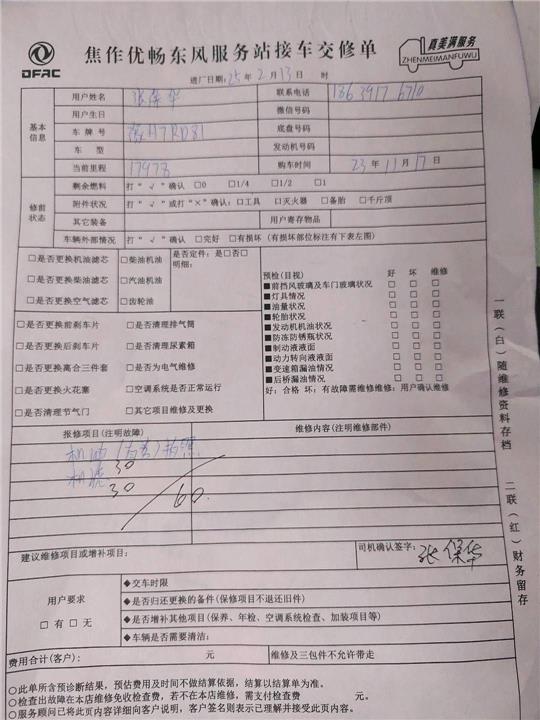 DFAC
焦作优畅东风服务站接车交修单
真美满服务
ZHENMEIMANFUWU
进厂日期: 25 年 2 月 13 日 时
基本信息
用户姓名 联系电话
用户生日 微信号码
车牌号 底盘号码
车型 发动机号码
当前里程 17978 购车时间 23 年 11 月 17 日
修前状态
剩余燃料 打“√”确认 □0 □1/4 □1/2 □1
附件状况 打“√”或打“×”确认:□工具 □灭火器 □备胎 □千斤顶
其它装备 用户寄存物品
车辆外部情况 打“√”确认 □完好 □有损坏 (有损坏部位标注有下表左图)
□是否更换机油滤芯 □柴油机油 是否定件:是□否□
明细:
□是否更换柴油滤芯 □汽油机油
□是否更换空气滤芯 □齿轮油
□是否更换前刹车片 □是否清理排气筒
□是否更换后刹车片 □是否清理尿素箱
□是否更换离合三件套 □是否为电气维修
□是否更换火花塞 □空调系统是否正常运行
□是否清理节气门 □其它项目维修及更换
预检(目视) 好 坏 维修
■前挡风玻璃及车门玻璃状况 □ □ □
■灯具情况 □ □ □
■油量状况 □ □ □
■轮胎状况 □ □ □
■发动机机油状况 □ □ □
■防冻防锈瓶状况 □ □ □
■制动液液面 □ □ □
■动力转向液液面 □ □ □
■变速箱漏油情况 □ □ □
■后桥漏油情况 □ □ □
好:合格 坏:有故障需维修维修:用户确认维修
报修项目(注明故障) 维修内容(注明维修部件)
机油
30
机滤
30
60
建议维修项目或增补项目:
司机确认签字: 张保华
用户要求
□有□无
◆交车时限
◆是否归还更换的备件(保修项目不退还旧件)
◆是否增补其他项目(保养、年检、空调系统检查、加装项目等)
◆车辆是否需要清洁:
费用合计(客户): 元 维修及三包件不允许带走
○此单所含预诊断结果,预估费用及时间不做结算依据,结算以结算单为准。
○检查出故障在本店维修免收检查费,若不在本店维修,需支付检查费 元。
○服务顾问已将此页内容详细向客户说明,客户签名则表示已理解并接受此页内容。
一联(白)随维修资料存档
二联(红)财务留存